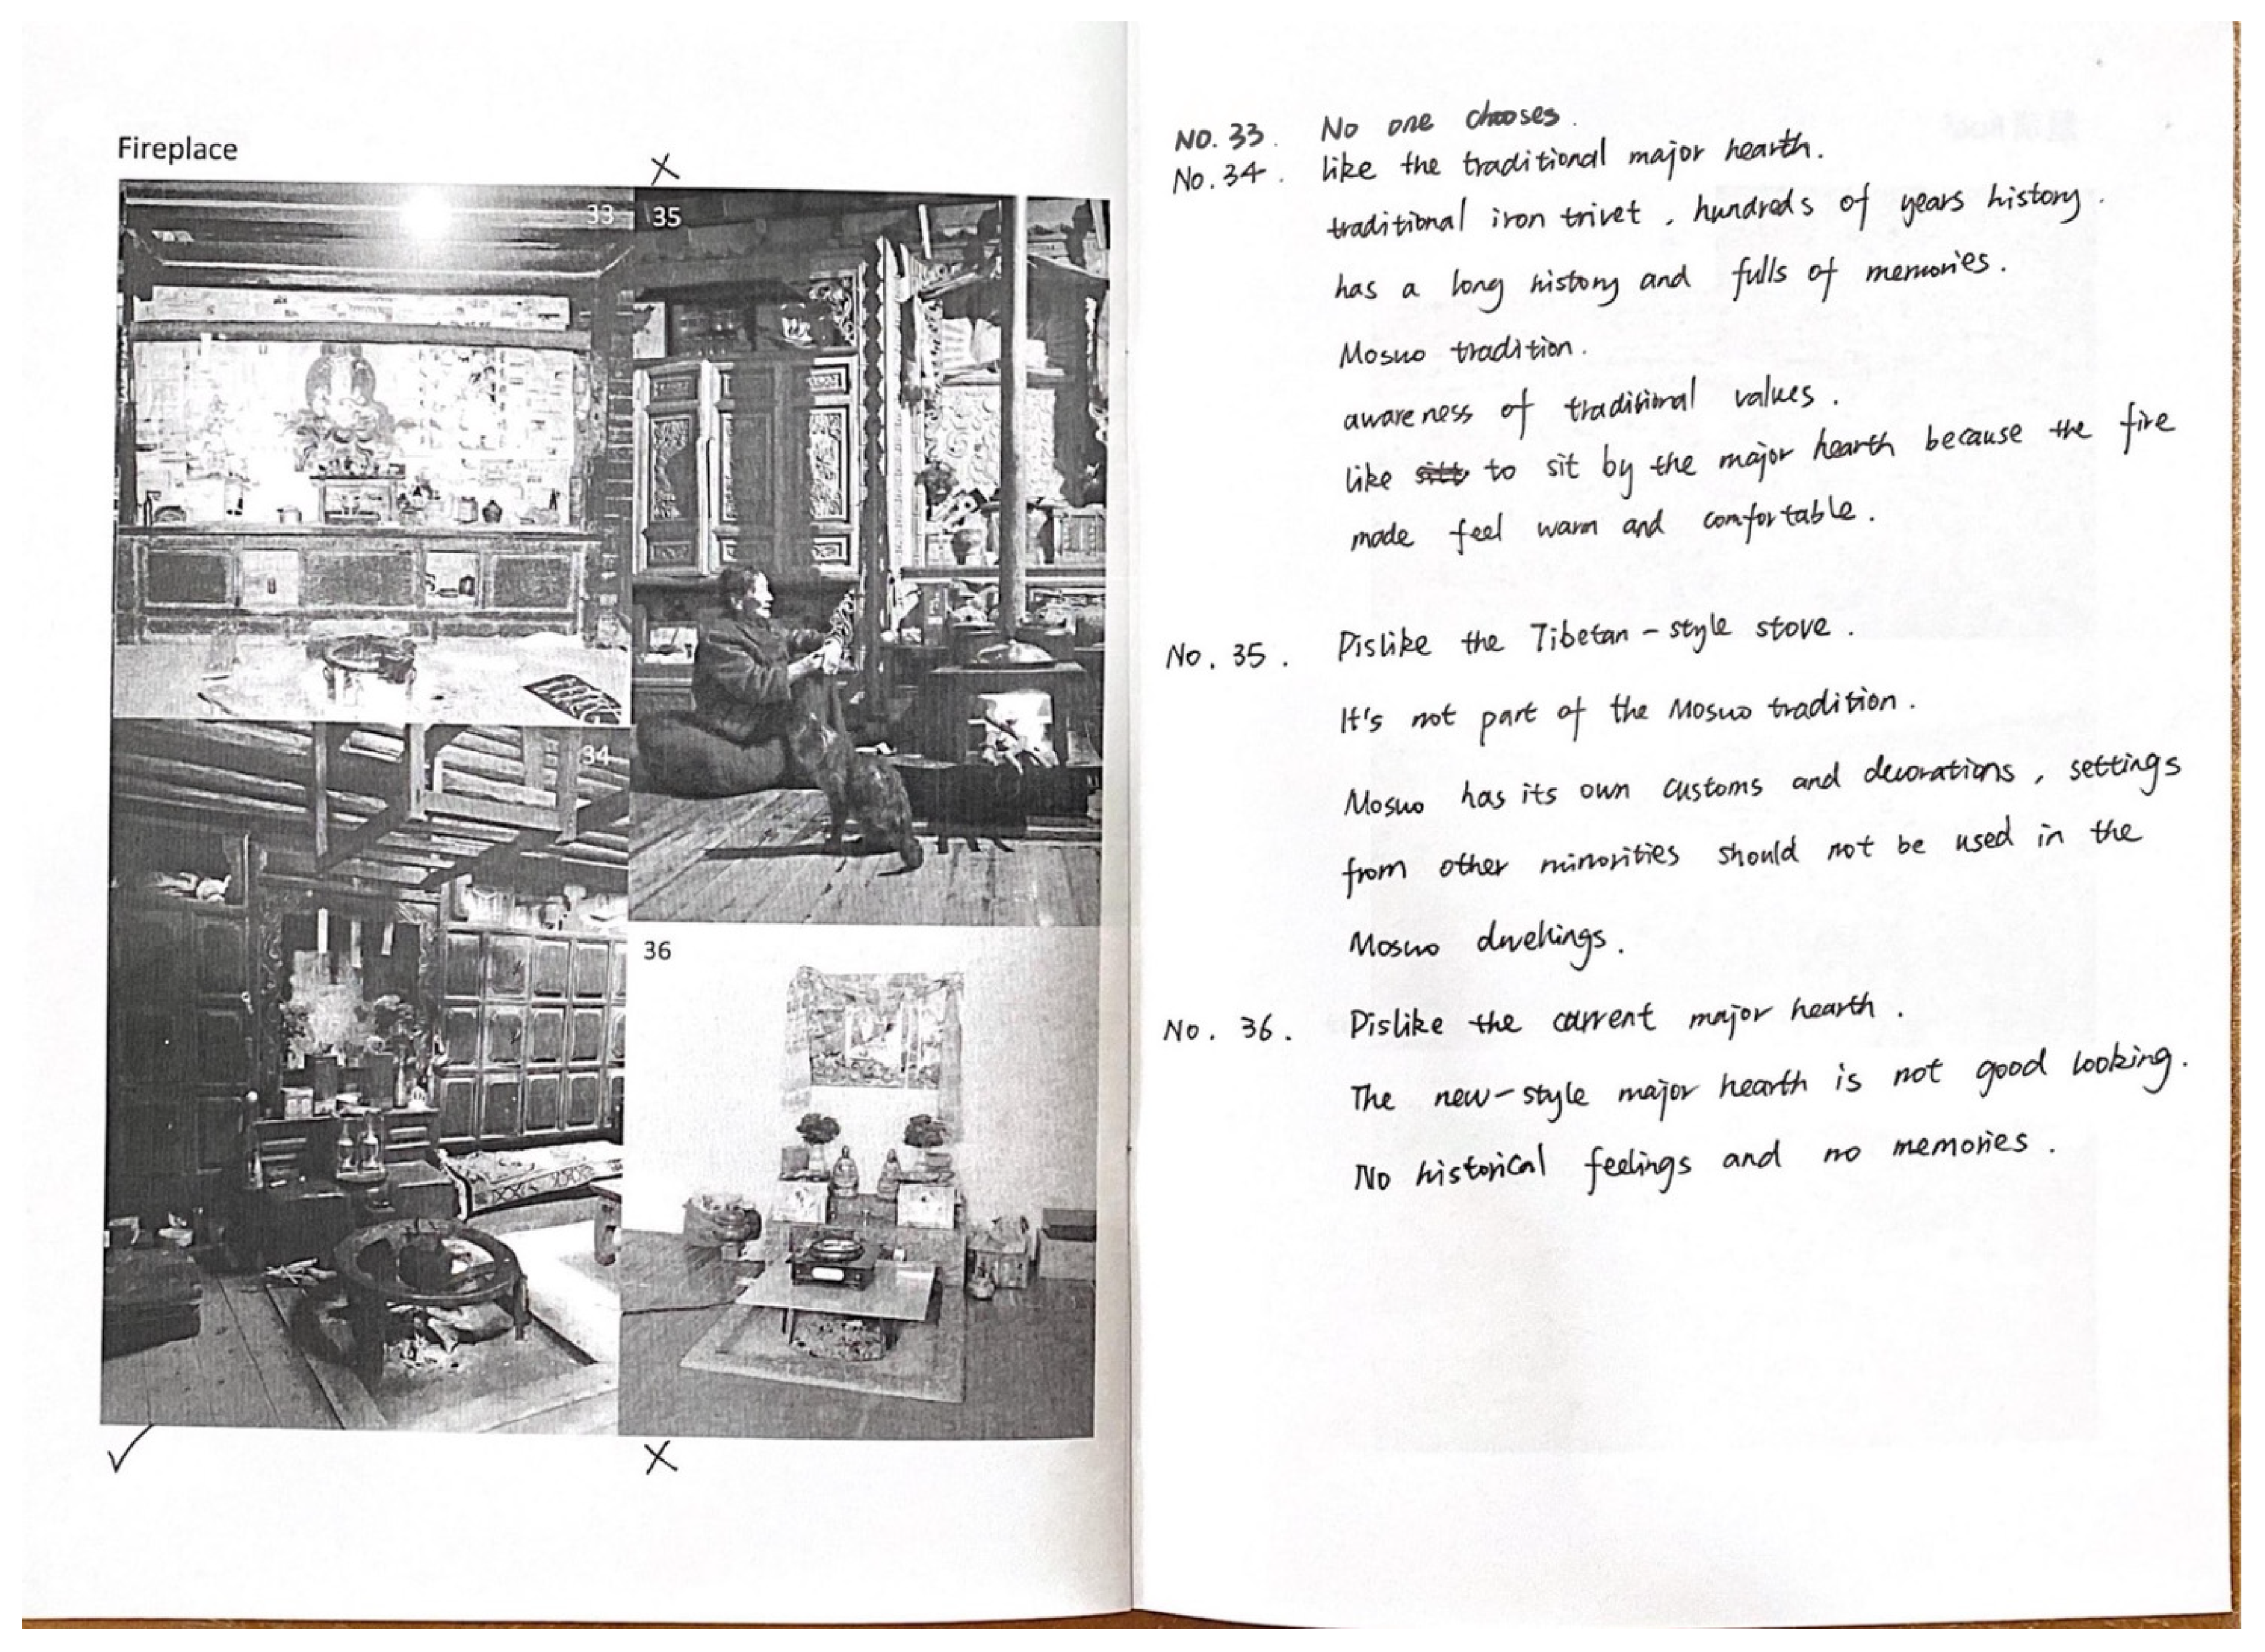 Fireplace
33
35
34
36
No. 33. No one chooses.
No. 34. like the traditional major hearth.
traditional iron trivet, hundreds of years history.
has a long history and fulls of memories.
Mosuo tradition.
awareness of traditional values.
like to sit by the major hearth because the fire
made feel warm and comfortable.
No. 35. Dislike the Tibetan-style stove.
It's not part of the Mosuo tradition.
Mosuo has its own customs and decorations, settings
from other minorities should not be used in the
Mosuo dwellings.
No. 36. Dislike the current major hearth.
The new-style major hearth is not good looking.
No historical feelings and no memories.